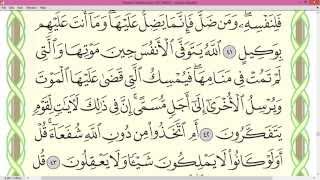 فَلِنَفْسِهِۦ ۖ وَمَن ضَلَّ فَإِنَّمَا يَضِلُّ عَلَيْهَا ۖ وَمَآ أَنتَ عَلَيْهِم
بِوَكِيلٍ ٤١ ٱللَّهُ يَتَوَفَّى ٱلْأَنفُسَ حِينَ مَوْتِهَا وَٱلَّتِى
لَمْ تَمُتْ فِى مَنَامِهَا ۖ فَيُمْسِكُ ٱلَّتِى قَضَىٰ عَلَيْهَا ٱلْمَوْتَ
وَيُرْسِلُ ٱلْأُخْرَىٰٓ إِلَىٰٓ أَجَلٍ مُّسَمًّى ۚ إِنَّ فِى ذَٰلِكَ لَءَايَٰتٍ لِّقَوْمٍ
يَتَفَكَّرُونَ ٤٢ أَمِ ٱتَّخَذُوا۟ مِن دُونِ ٱللَّهِ شُفَعَآءَ ۚ قُلْ
أَوَلَوْ كَانُوا۟ لَا يَمْلِكُونَ شَيْـًٔا وَلَا يَعْقِلُونَ ٤٣ قُل